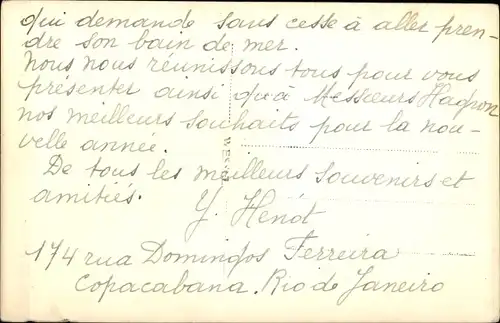 qui demande sans cesse à aller pren-
dre son bain de mer.
Nous nous réunissons tous pour vous
présenter ainsi qu'à Messieurs Hagron
nos meilleurs souhaits pour la nou-
velle année.
De tous les meilleurs souvenirs et
amitiés.
Y. Henót
174 rua Domingos Ferreira
Copacabana. Rio de Janeiro